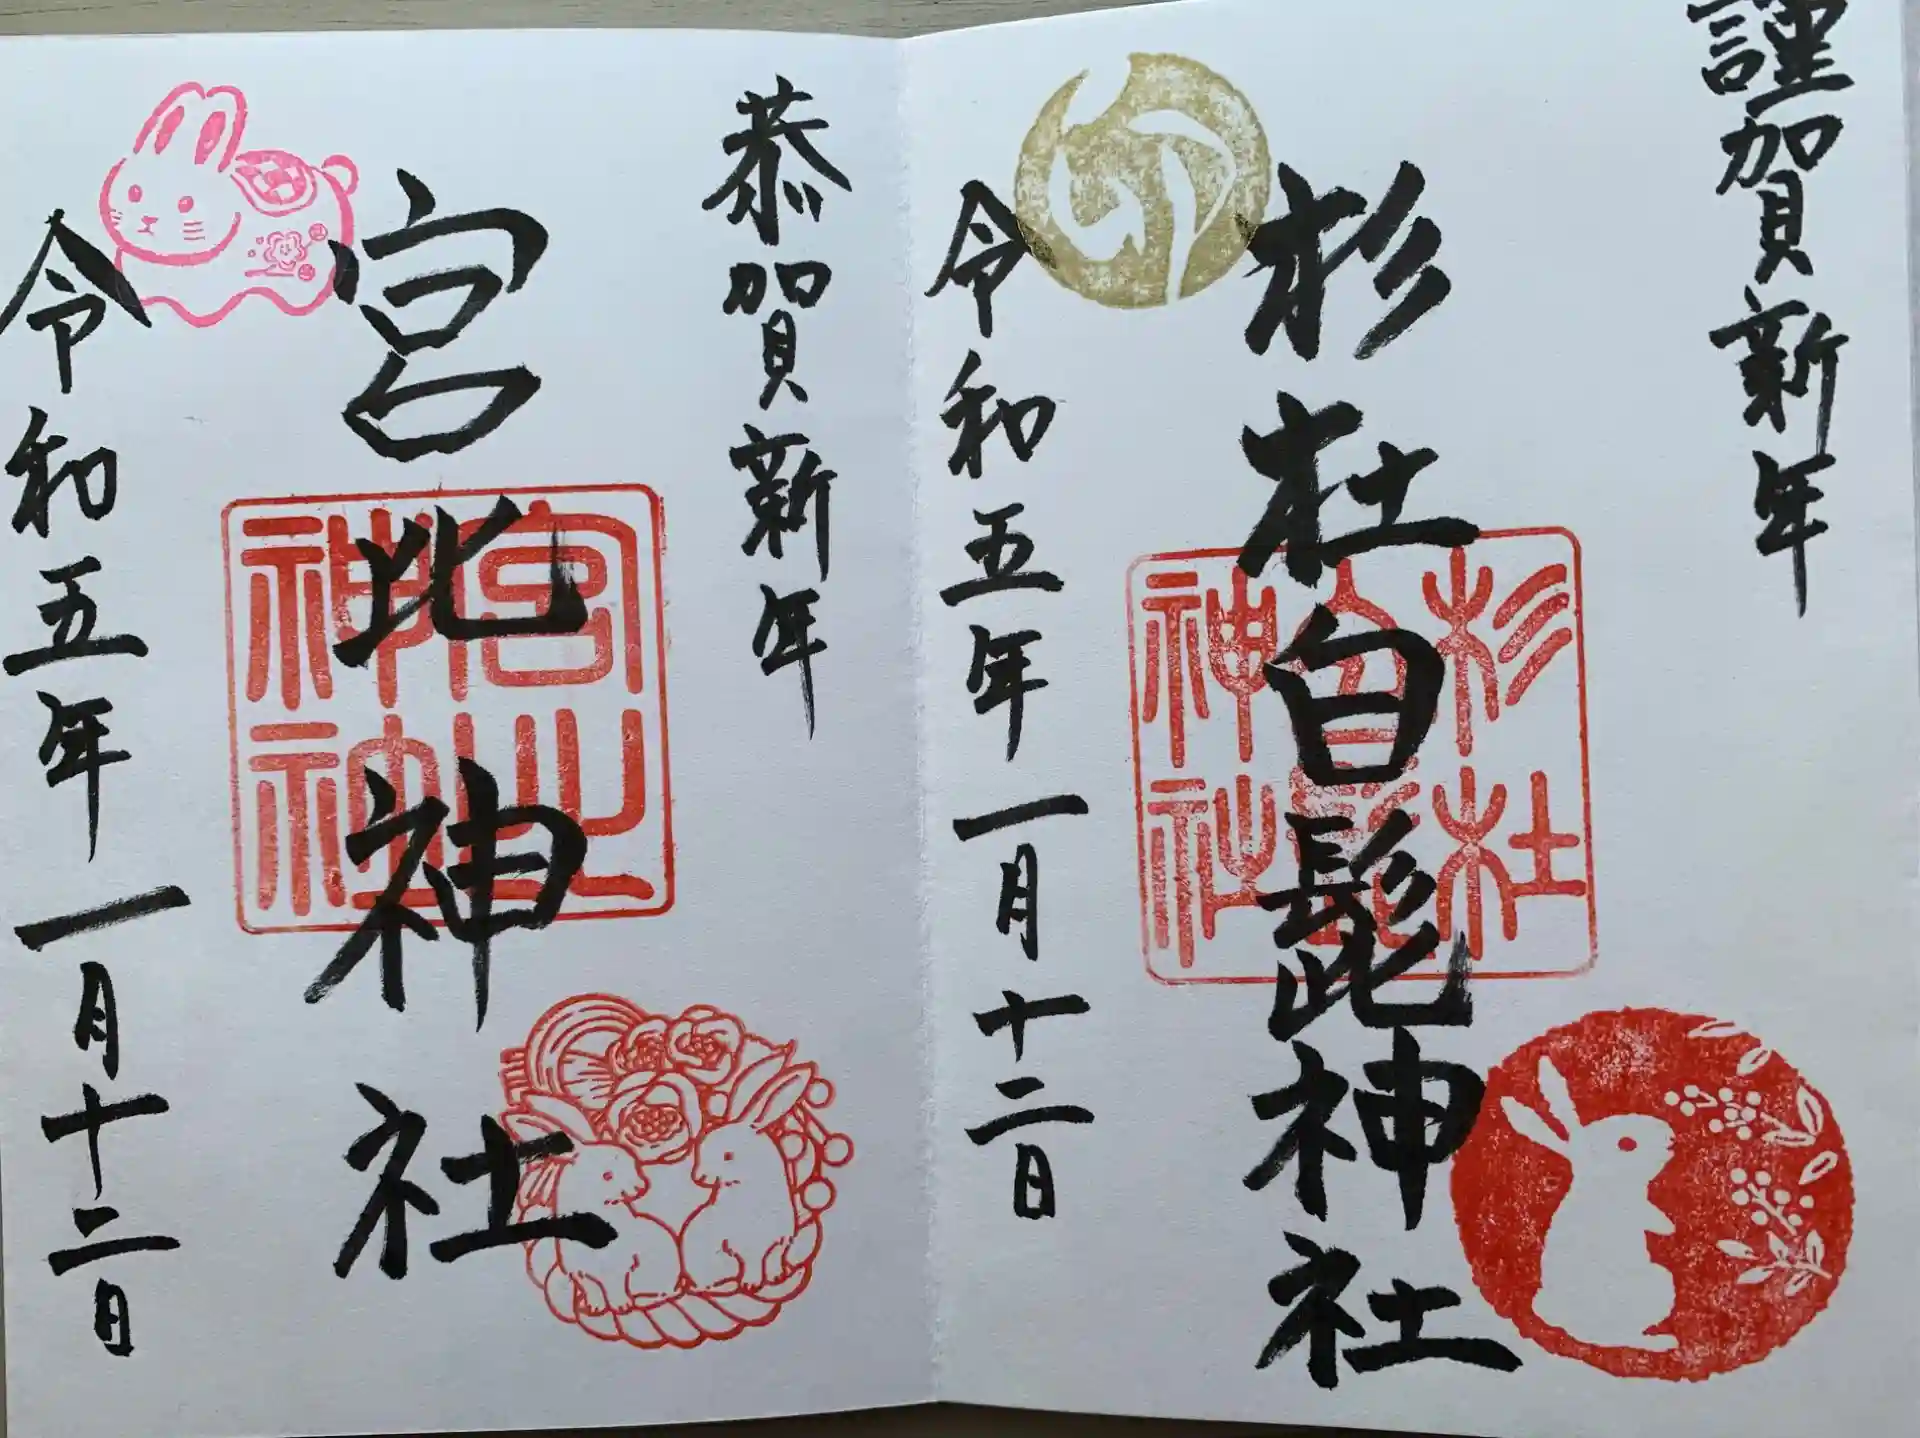 謹賀新年
杉杜白髭神社
杉杜
白髭
神社
令和五年一月十二日
恭賀新年
宮 神社
宮
神社
令和五年一月十二日